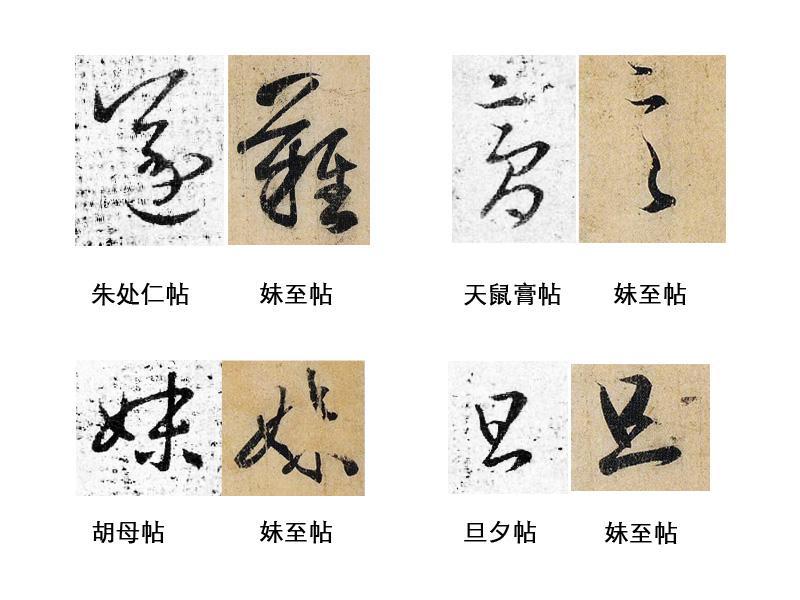 遂 難
朱处仁帖 妹至帖 天鼠膏帖 妹至帖
妹 妹 旦 旦
胡母帖 妹至帖 旦夕帖 妹至帖